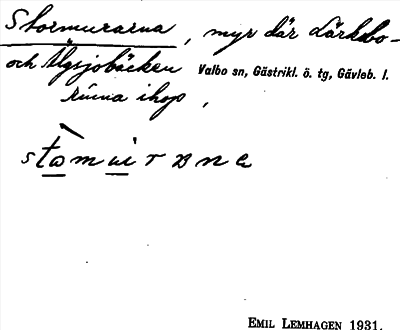 Stormurarna, myr där Lärkebo-
och Älgsjobäcken Valbo sn, Gästrikl. ö. tg, Gävleb. l.
rinna ihop,
EMIL LEMHAGEN 1931.